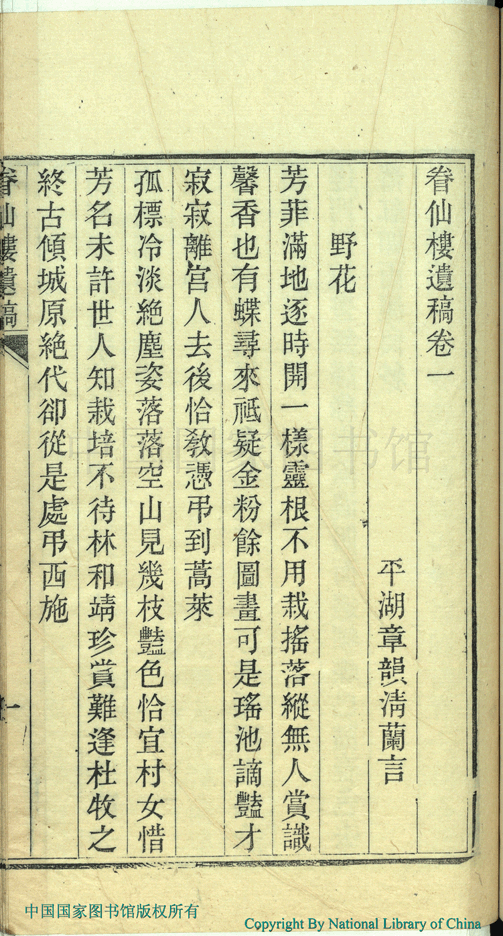 眷仙樓遺稿卷一
平湖章韻淸蘭言
野花
芳菲滿地逐時開一樣靈根不用栽搖落縱無人賞識
馨香也有蝶尋來祗疑金粉餘圖畫可是瑤池謫豔才
寂寂離宮人去後恰敎憑弔到蒿萊
孤標冷淡絶塵姿落落空山見幾枝豔色恰宜村女惜
芳名未許世人知栽培不待林和靖珍賞難逢杜牧之
終古傾城原絶代卻從是處弔西施
眷仙樓遺稿
一
中国国家图书馆版权所有
Copyright By National Library of China